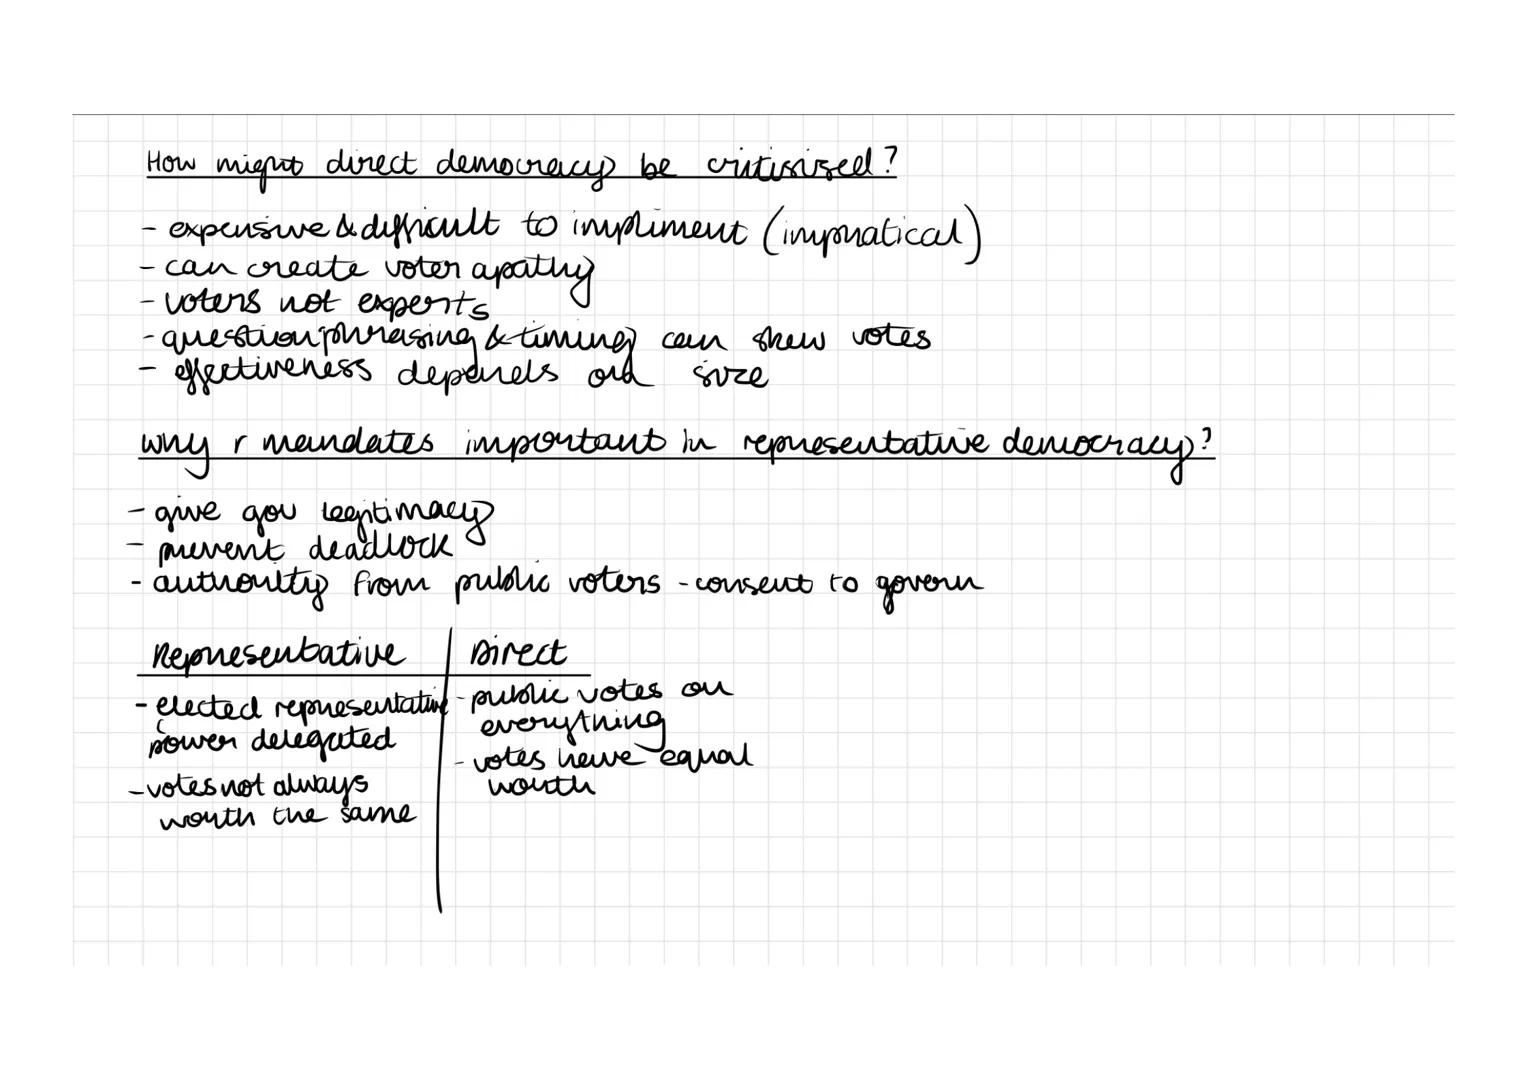 How might direct democracy be critisised?
- expensive & difficult to impliment (impratical)
- can create voter apathy
- voters not experts
- question phrasing & timing can skew votes
- effectiveness depends on size
why r mandates important in representative democracy?
- give gov legitimacy
- prevent deadlock
- authority from public voters - consent to govern
Representative | Direct
- elected representative
power delegated
- votes not always
worth the same
- public votes on
everything
- votes have equal
worth